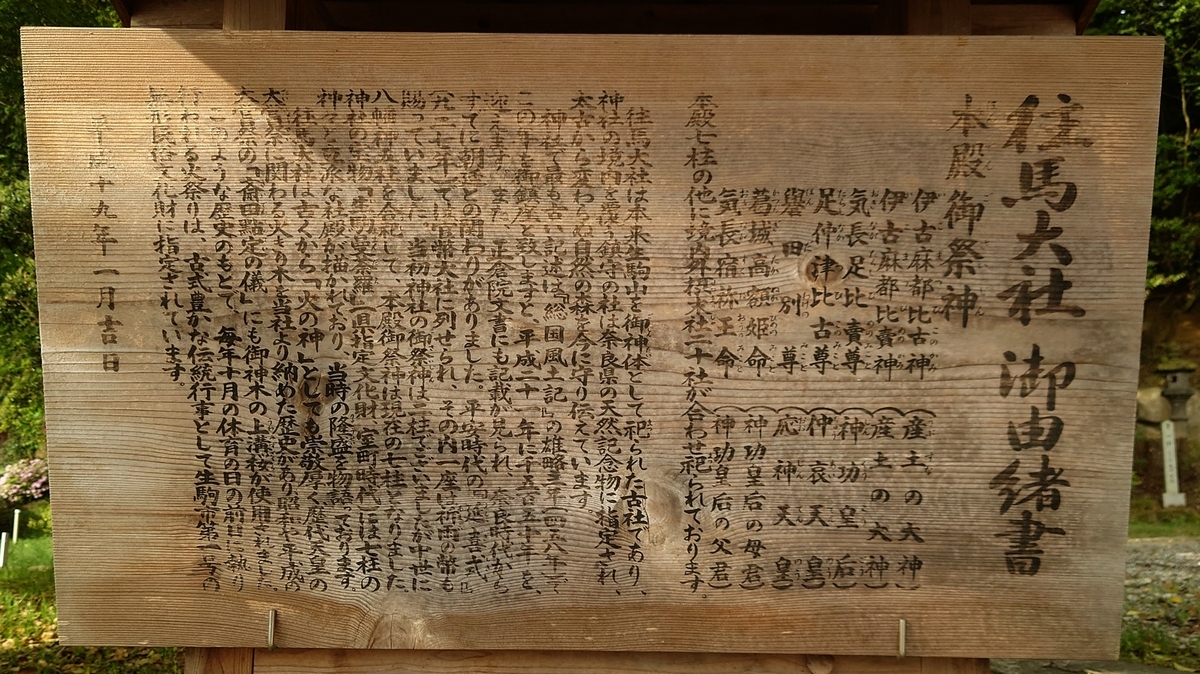 往馬大社 御由緒書
本殿 御祭神
伊古麻都比古神 (産土の大神)
伊古麻都比賣神 (産土の大神)
気長足比賣尊 (神功皇后)
足仲津比古尊 (仲哀天皇)
譽田別尊 (応神天皇)
葛城高額姫命 (神功皇后の母君)
気長宿祢王命 (神功皇后の父君)
本殿七柱の他に境内外摂末社二十社が合わせ祀られております。
往馬大社は本来生駒山を御神体として祀られた古社であり、
神社の境内を覆う鎮守の杜は奈良県の天然記念物に指定され、
太古から変わらぬ自然の森を今に守り伝えています。
神社で最も古い記述は『総国風土記』の雄略三年(四五八年)で
この年を御鎮座と致しますと、平成二十一年に千五百五十年を
迎えます。また、正倉院文書にも記載が見られ、奈良時代から
すでに朝廷との関わりがありました。平安時代の『延喜式』
(九二七年)では官幣大社に列せられ、その内一座は祈雨の幣も
賜っていました。当初神社の御祭神は二柱でございましたが中世に
八幡神五柱を合祀して、本殿御祭神は現在の七柱となりました。
神社の宝物「生駒曼荼羅」(県指定文化財 室町時代)には七柱の
神々と立派な社殿が描かれており、当時の隆盛を物語っております。
往馬大社は古くから「火の神」としても崇敬厚く歴代天皇の
大嘗祭に関わる火きり木を当社より納めた歴史があり昭和・平成の
大嘗祭の「斎田点定の儀」にも御神木の上溝桜が使用されました。
このような歴史のもとで、毎年十月の体育の日の前日に執り
行われる火祭りは、古式豊かな伝統行事として生駒市第一号の
無形民俗文化財に指定されています。
平成十九年一月吉日